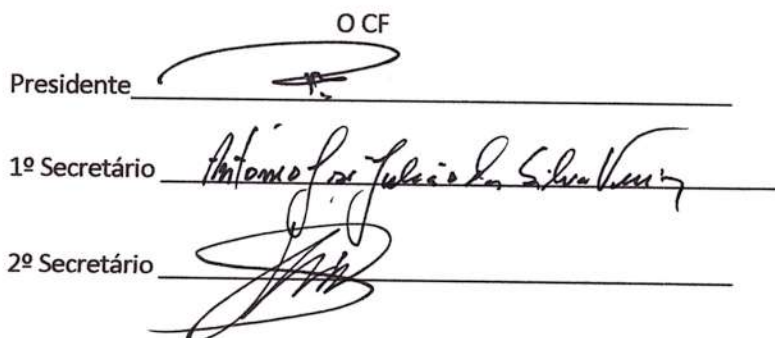 O CF
Presidente
1º Secretário António José Julião da Silva
2º Secretário